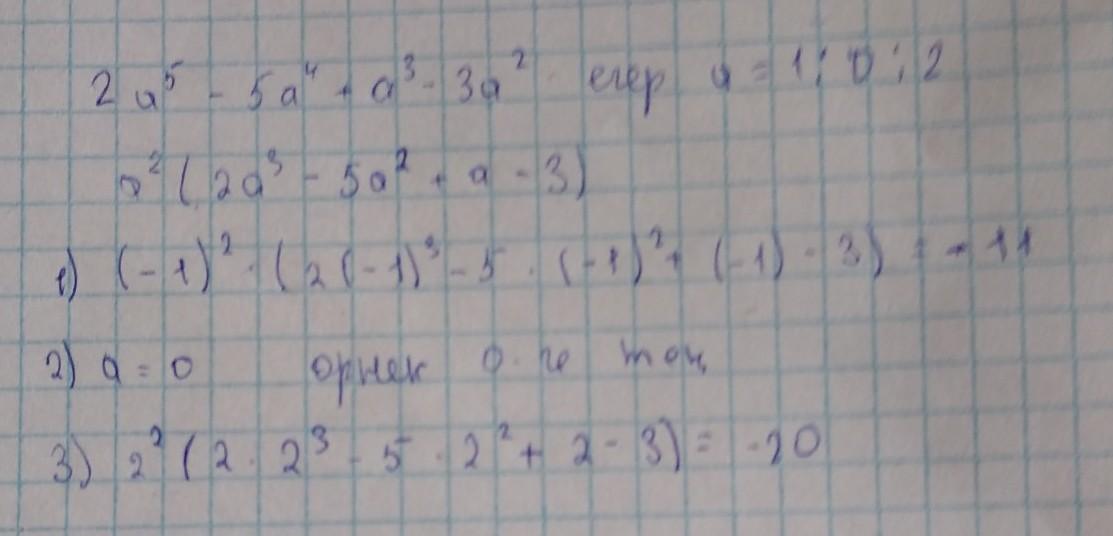 2a⁵ - 5a⁴ + a³ - 3a² егер a = 1; 0; 2
a² (2a³ - 5a² + a - 3)
1) (-1)² · (2(-1)³ - 5 · (-1)² + (-1) - 3) = -11
2) a = 0 өрнек 0-ге тең
3) 2² (2 · 2³ - 5 · 2² + 2 - 3) = -20